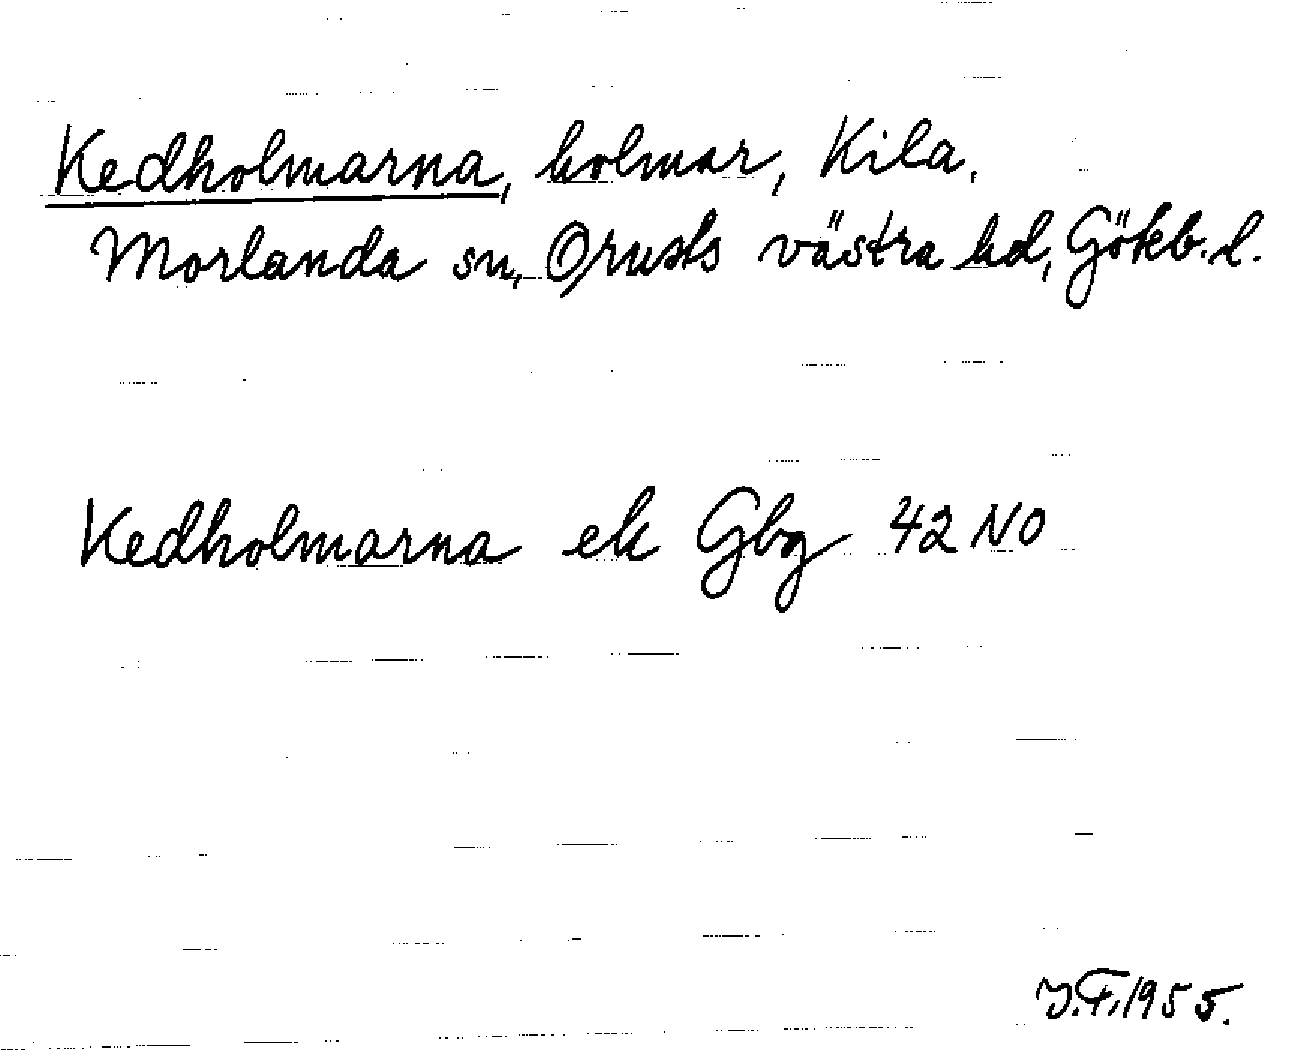 Kedholmarna, holmar, Kila,
Morlanda sn, Orusts västra hd, Göteb. l.
Kedholmarna ek Gbg 42 NO
J.F. 1955.